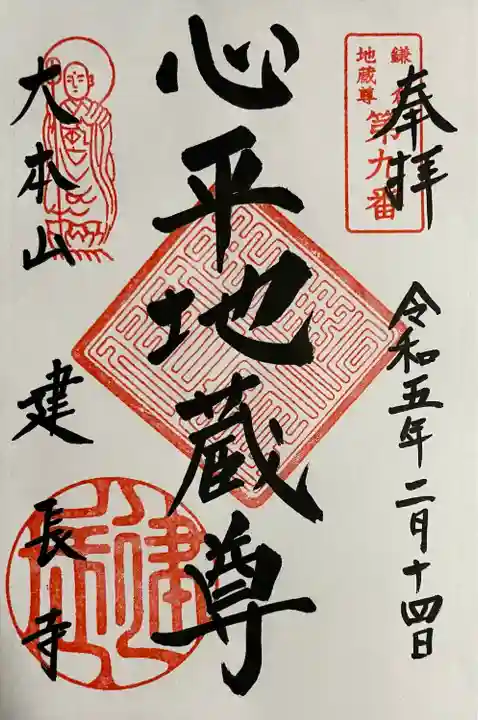 奉拝
鎌倉
地蔵尊
第九番
令和五年二月十四日
心平地蔵尊
大本山
建長寺